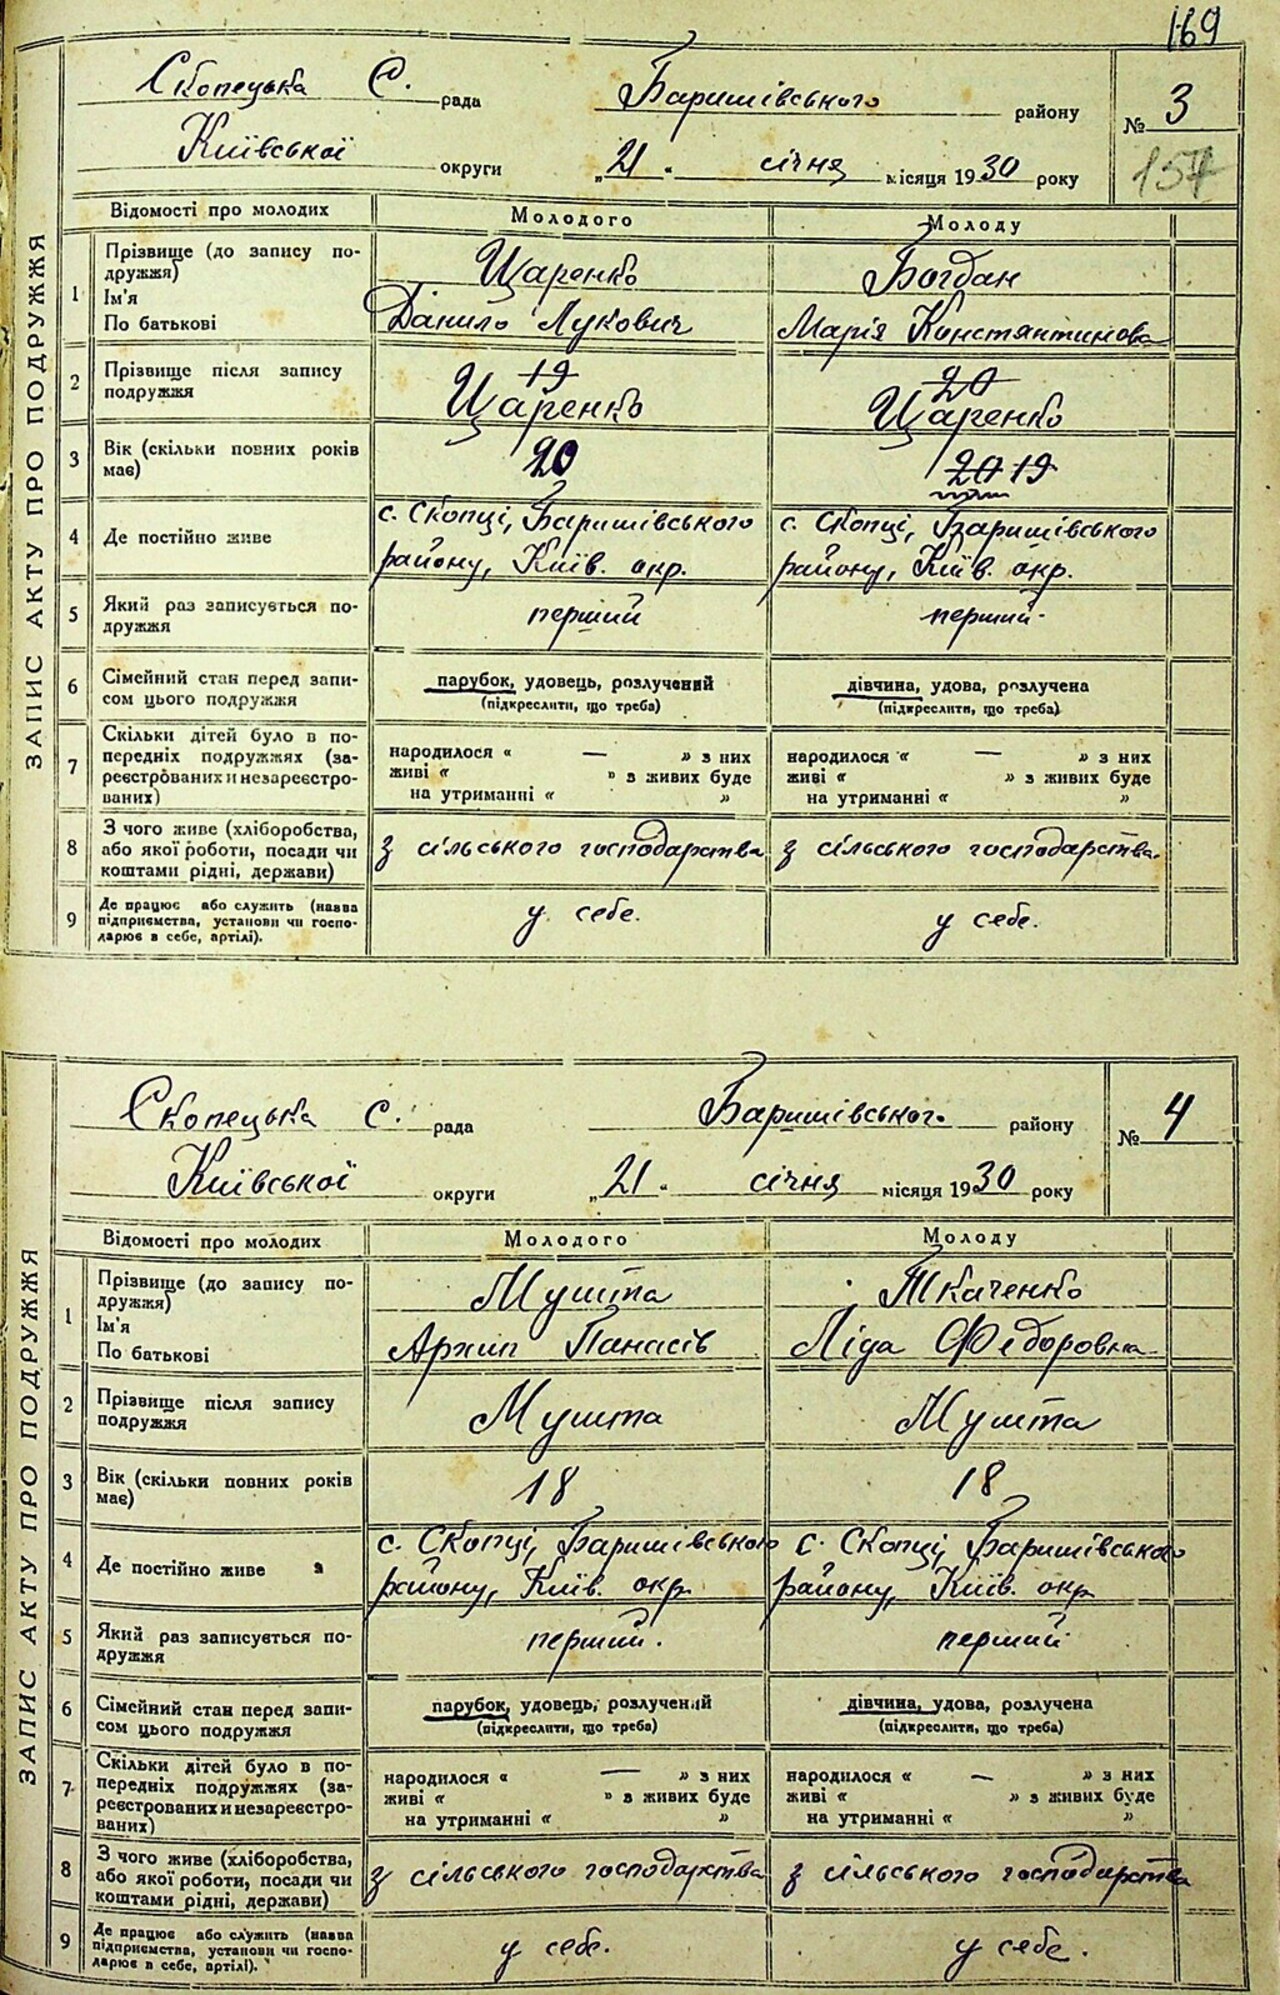 169
Скопецька С. рада Баришівського району № 3
Київської округи „21" січня місяця 1930 року 157
ЗАПИС АКТУ ПРО ПОДРУЖЖЯ
Відомості про молодих Молодого Молоду
1 Прізвище (до запису по-
дружжя) Царенко Богдан
Ім'я
По батькові Данило Лукович Марія Константинова
2 Прізвище після запису 19 20
подружжя Царенко Царенко
3 Вік (скільки повних років
має) 20 20 19
4 Де постійно живе с. Скопці, Баришівського с. Скопці, Баришівського
району, Київ. окр. району, Київ. окр.
5 Який раз записується по-
дружжя перший перший
6 Сімейний стан перед запи- парубок, удовець, розлучений дівчина, удова, розлучена
сом цього подружжя (підкреслити, що треба) (підкреслити, що треба)
7 Скільки дітей було в по-
передніх подружжях (за- народилося « — » з них народилося « — » з них
реєстрованих и незареєстро- живі « » з живих буде живі « » з живих буде
ваних) на утриманні « » на утриманні « »
8 З чого живе (хліборобства,
або якої роботи, посади чи з сільського господарства з сільського господарства.
коштами рідні, держави)
9 Де працює або служить (назва
підприємства, установи чи госпо- у себе. у себе.
дарює в себе, артілі).
Скопецька С. рада Баришівського району № 4
Київської округи „21" січня місяця 1930 року
ЗАПИС АКТУ ПРО ПОДРУЖЖЯ
Відомості про молодих Молодого Молоду
1 Прізвище (до запису по-
дружжя) Мушта Ткаченко
Ім'я
По батькові Архип Панасів Ліда Федоровна
2 Прізвище після запису
подружжя Мушта Мушта
3 Вік (скільки повних років
має) 18 18
4 Де постійно живе с. Скопці, Баришівського с. Скопці, Баришівського
району, Київ. окр району, Київ. окр
5 Який раз записується по-
дружжя перший. перший
6 Сімейний стан перед запи- парубок, удовець, розлучений дівчина, удова, розлучена
сом цього подружжя (підкреслити, що треба) (підкреслити, що треба)
7 Скільки дітей було в по-
передніх подружжях (за- народилося « — » з них народилося « — » з них
реєстрованих и незареєстро- живі « » з живих буде живі « » з живих буде
ваних) на утриманні « » на утриманні « »
8 З чого живе (хліборобства,
або якої роботи, посади чи з сільського господарства з сільського господарства
коштами рідні, держави)
9 Де працює або служить (назва
підприємства, установи чи госпо- у себе. у себе.
дарює в себе, артілі).